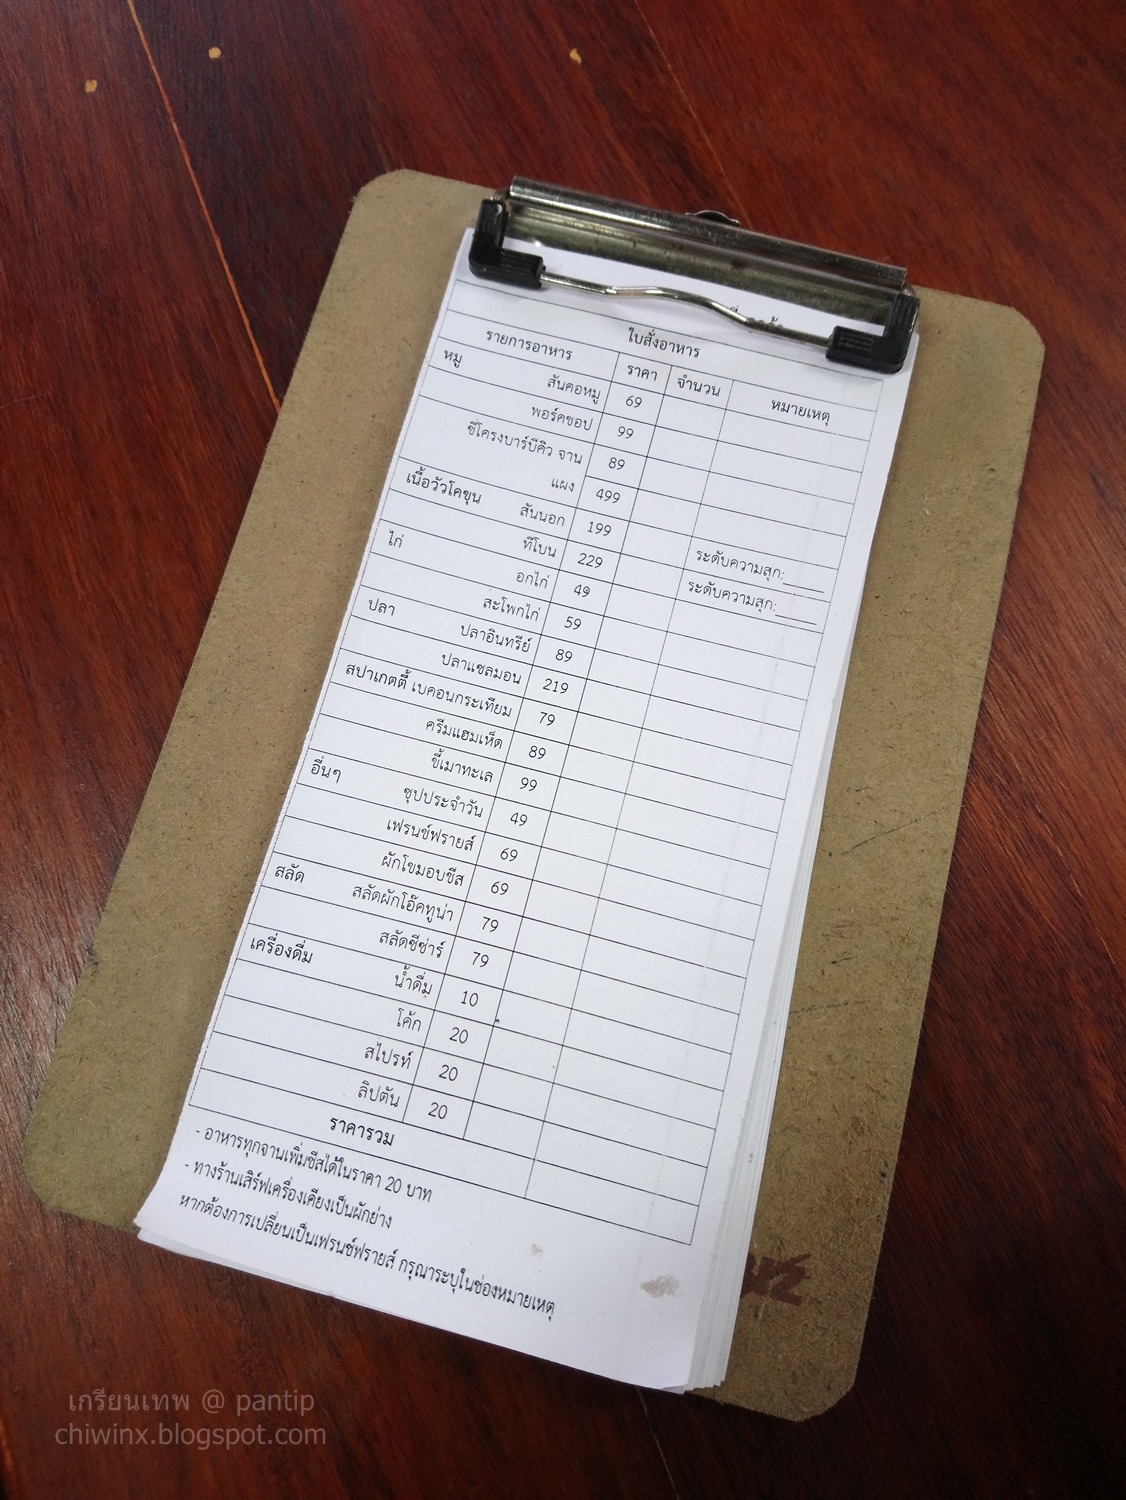 ใบสั่งอาหาร
รายการอาหาร ราคา จำนวน หมายเหตุ
หมู สันคอหมู 69
พอร์คชอป 99
ซี่โครงบาร์บีคิว จาน 89
แผง 499
เนื้อวัวโคขุน สันนอก 199 ระดับความสุก:_____
ทีโบน 229 ระดับความสุก:_____
ไก่ อกไก่ 49
สะโพกไก่ 59
ปลา ปลาอินทรีย์ 89
ปลาแซลมอน 219
สปาเกตตี้ เบคอนกระเทียม 79
ครีมแฮมเห็ด 89
ขี้เมาทะเล 99
อื่นๆ ซุปประจำวัน 49
เฟรนช์ฟรายส์ 69
ผักโขมอบชีส 69
สลัด สลัดผักโอ๊คทูน่า 79
สลัดซีซ่าร์ 79
เครื่องดื่ม น้ำดื่ม 10
โค้ก 20
สไปรท์ 20
ลิปตัน 20
ราคารวม
- อาหารทุกจานเพิ่มชีสได้ในราคา 20 บาท
- ทางร้านเสิร์ฟเครื่องเคียงเป็นผักย่าง
หากต้องการเปลี่ยนเป็นเฟรนช์ฟรายส์ กรุณาระบุในช่องหมายเหตุ
เกรียนเทพ @ pantip
chiwinx.blogspot.com